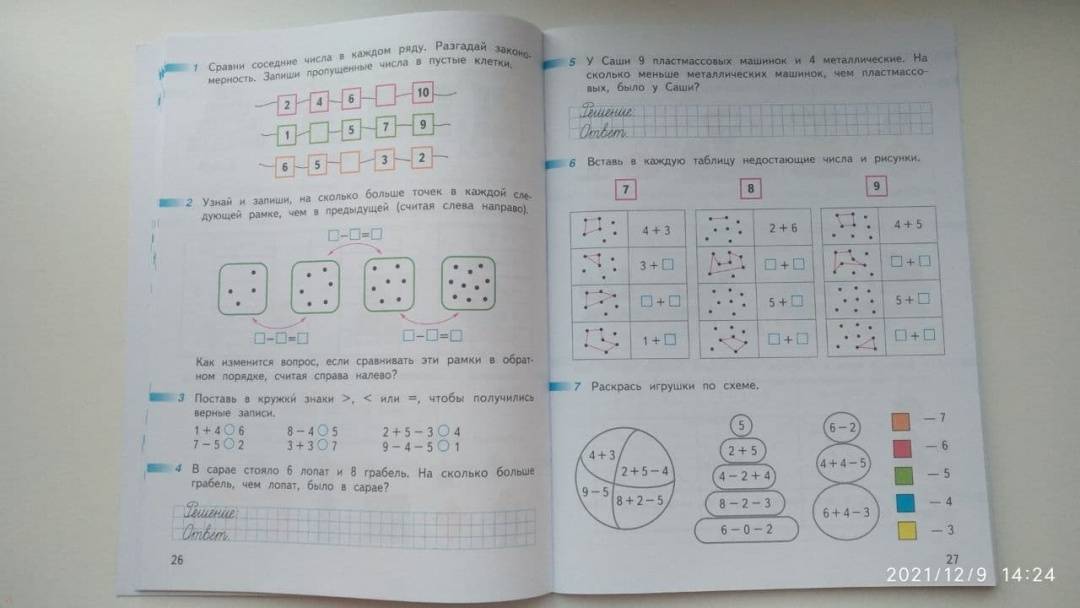 1 Сравни соседние числа в каждом ряду. Разгадай законо-
мерность. Запиши пропущенные числа в пустые клетки.
2 4 6 □ 10
1 □ 5 7 9
6 5 □ 3 2
2 Узнай и запиши, на сколько больше точек в каждой сле-
дующей рамке, чем в предыдущей (считая слева направо).
□−□=□
□−□=□ □−□=□
Как изменится вопрос, если сравнивать эти рамки в обрат-
ном порядке, считая справа налево?
3 Поставь в кружки знаки >, < или =, чтобы получились
верные записи.
1+4○6 8−4○5 2+5−3○4
7−5○2 3+3○7 9−4−5○1
4 В сарае стояло 6 лопат и 8 грабель. На сколько больше
грабель, чем лопат, было в сарае?
Решение:
Ответ.
26
5 У Саши 9 пластмассовых машинок и 4 металлические. На
сколько меньше металлических машинок, чем пластмассо-
вых, было у Саши?
Решение:
Ответ.
6 Вставь в каждую таблицу недостающие числа и рисунки.
7 8 9
4+3 2+6 4+5
3+□ □+□ □+□
□+□ 5+□ 5+□
1+□ □+□ □+□
7 Раскрась игрушки по схеме.
4+3
2+5−4
9−5
8+2−5
5
2+5
4−2+4
8−2−3
6−0−2
6−2
4+4−5
6+4−3
−7
−6
−5
−4
−3
27
2021/12/9 14:24